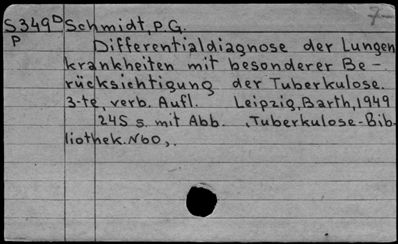 7-
S349D Schmidt, P.G.
P Differentialdiagnose der Lungen
krankheiten mit besonderer Be-
rücksichtigung der Tuberkulose.
3-te, verb. Aufl. Leipzig, Barth, 1949
245 s. mit Abb. ,Tuberkulose-Bib-
liothek. N60,.